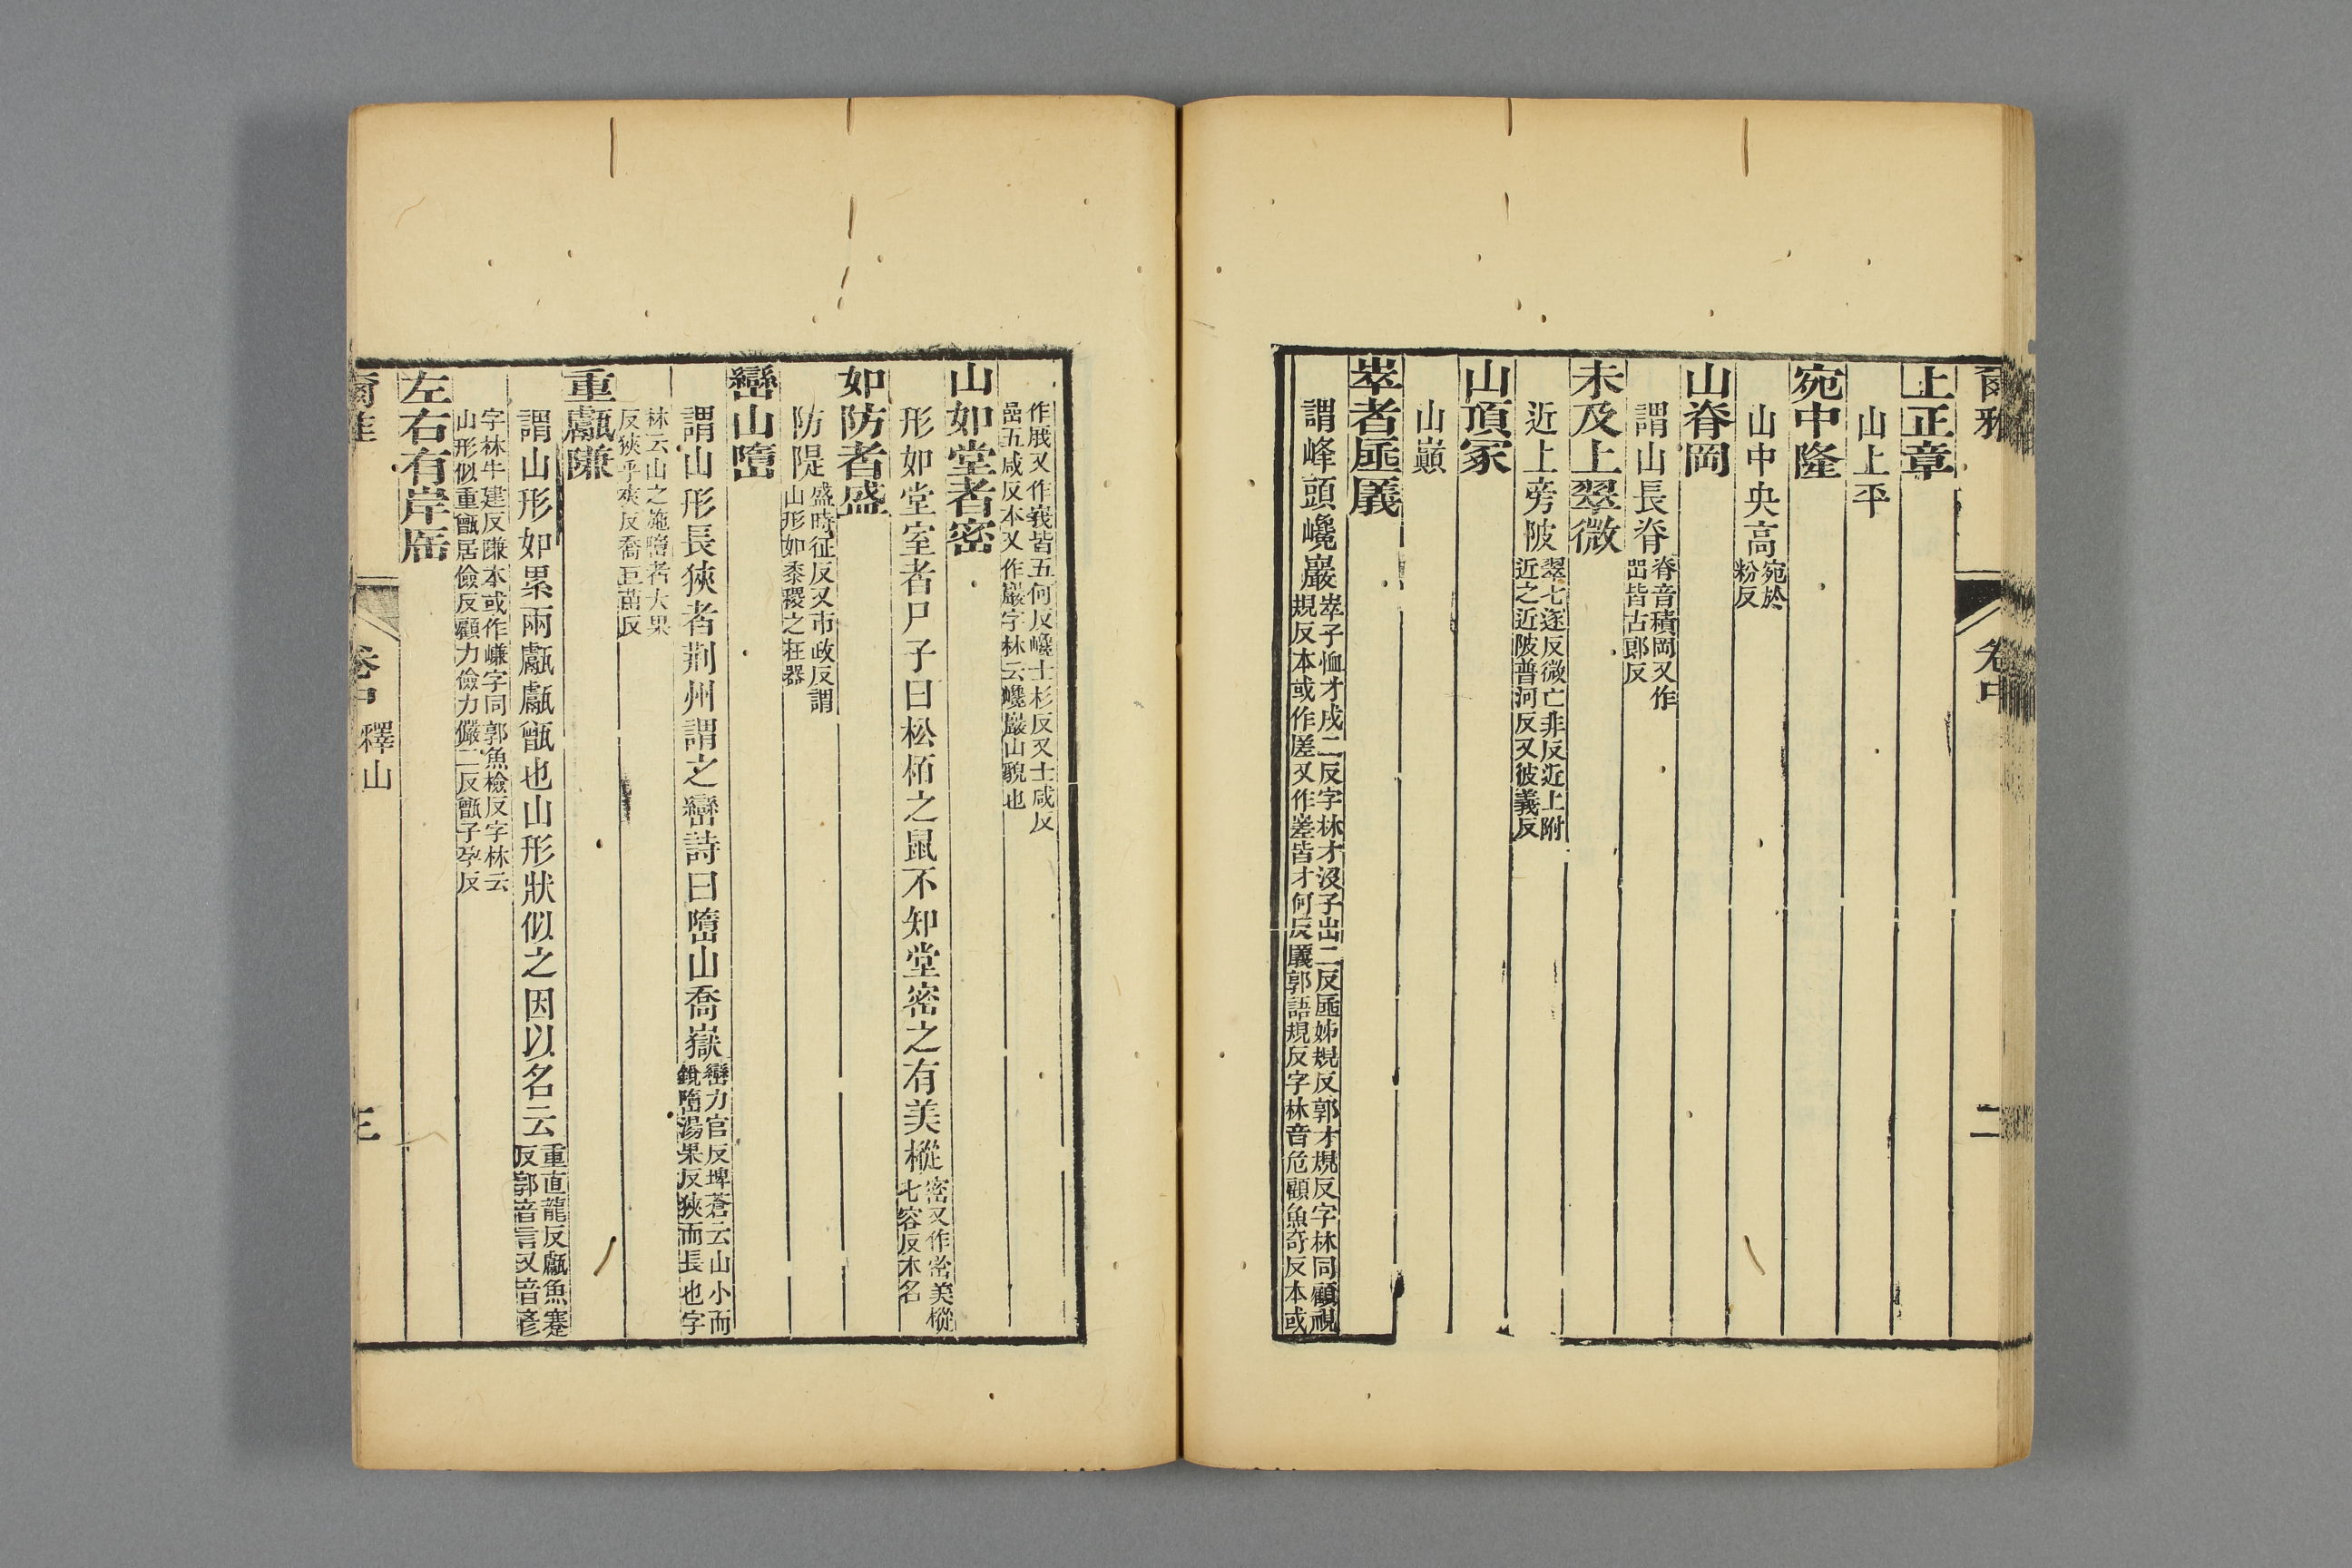 爾雅 卷中 二
上正章
山上平
宛中隆
山中央高宛於粉反
山脊岡
謂山長脊脊音積岡又作𡶩皆古郎反
未及上翠微
近上旁陂翠七遂反微亡非反近上附近之近陂普河反又彼義反
山頂冢
山巔
崒者厜㕒
謂峰頭巉巖崒子恤才戌二反字林才沒子出二反厜姊規反郭才規反字林同顧視規反本或作㢒又作嵳皆才何反㕒郭語規反字林音危顧魚奇反本或
作㕒又作峩皆五何反巉士杉反又士咸反嵒五咸反本又作巖字林云巉巖山貌也
山如堂者密
形如堂室者尸子曰松栢之鼠不知堂密之有美樅密又作宻美樅七容反木名
如防者盛
防隄盛時征反又市政反謂山形如黍稷之在器
巒山嶞
謂山形長狹者荆州謂之巒詩曰嶞山喬嶽巒力官反埤蒼云山小而銳嶞湯果反狹而長也字
林云山之施嶞者大果反狹乎夾反喬巨苗反
重甗隒
謂山形如累兩甗甗甑也山形狀似之因以名云重直龍反甗魚蹇反郭音言又音彥
字林牛建反隒本或作嵰字同郭魚檢反字林云山形似重甑居儉反顧力儉力儼二反甑子孕反
左右有岸厒
爾雅 卷中 釋山 三